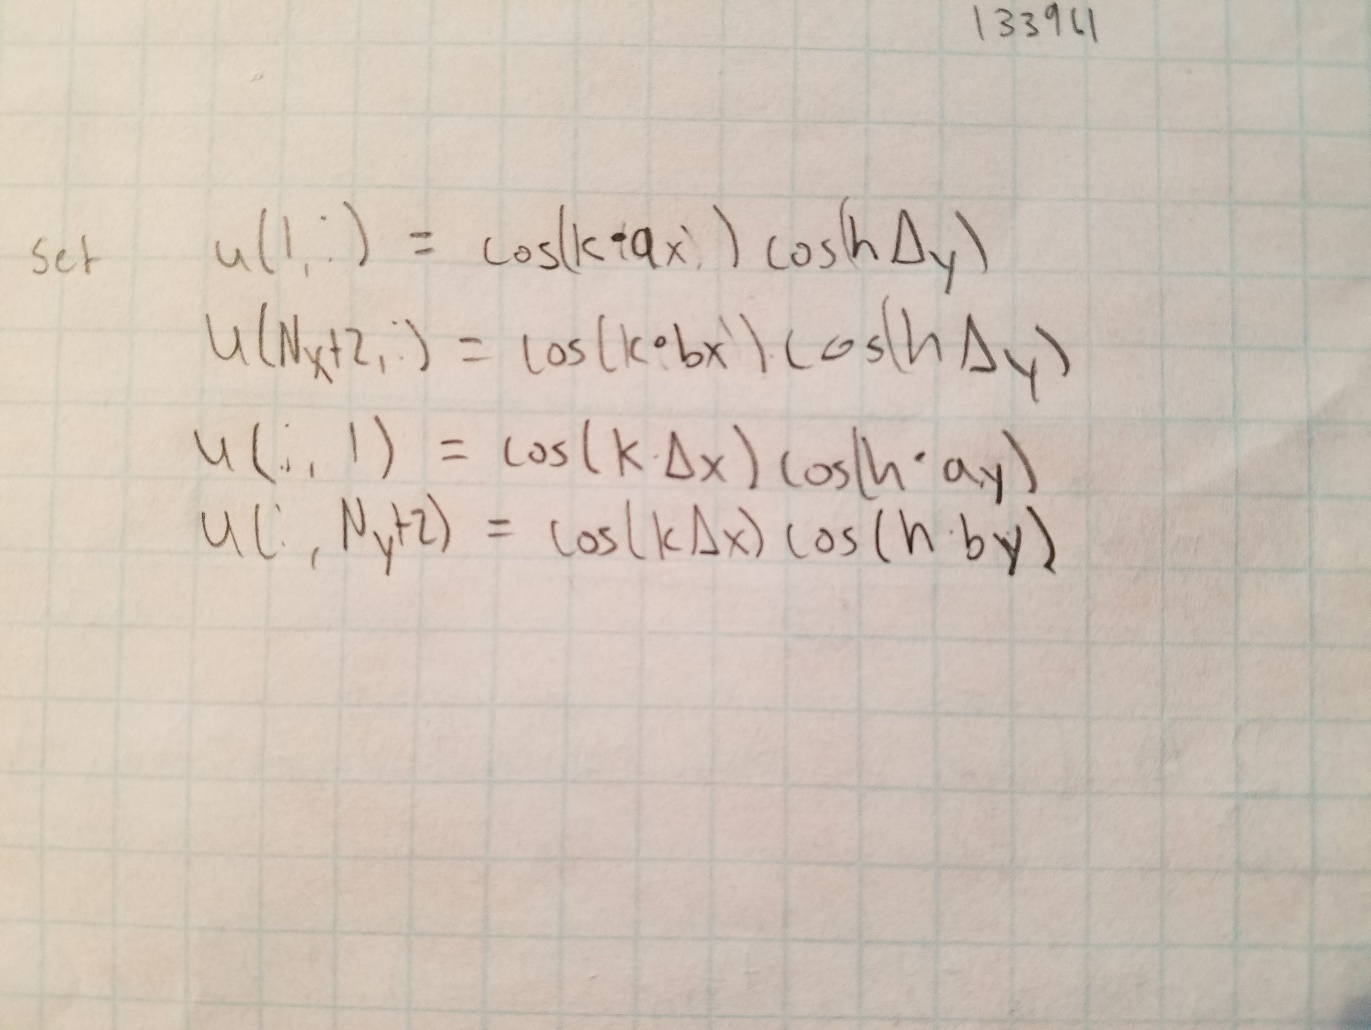 133961
Set u(1,:) = cos(k·ax) cos(h Δy)
u(Nx+2,:) = cos(k·bx) cos(h Δy)
u(:, 1) = cos(k·Δx) cos(h·ay)
u(:, Ny+2) = cos(kΔx) cos(h·by)